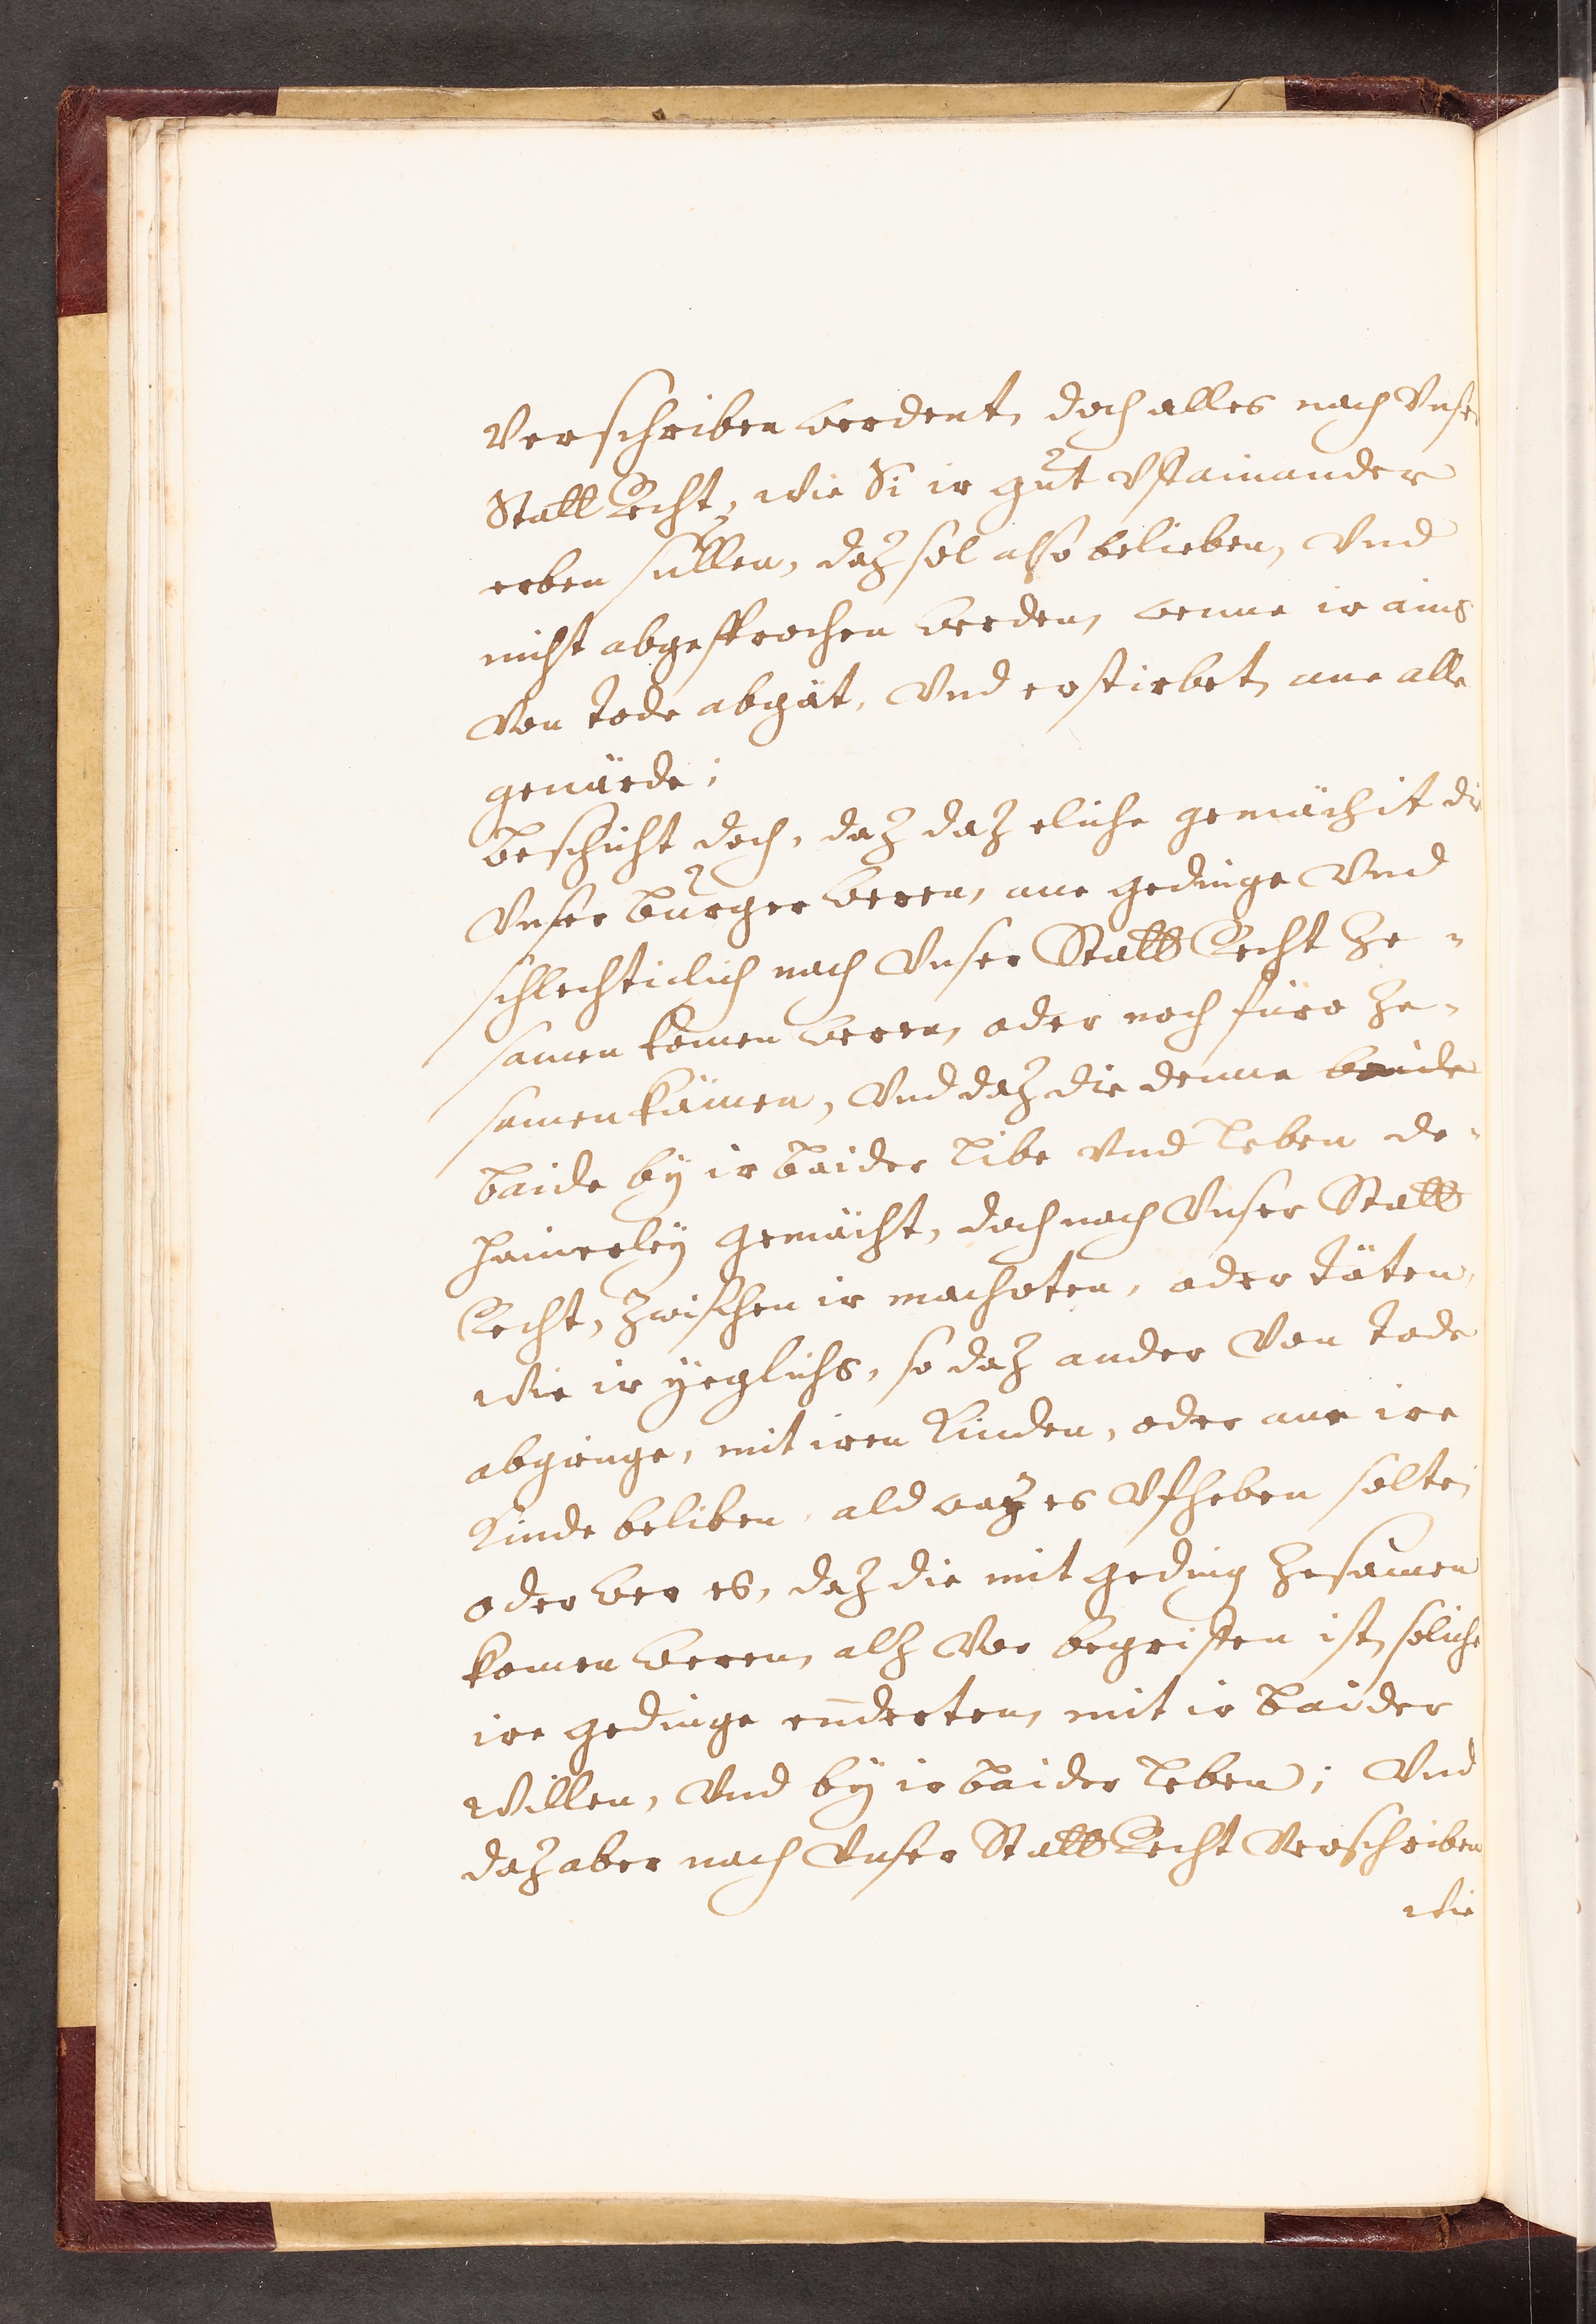 verschriben werdent, doch alles nach Vnser
Statt Recht, wie Si ir gůt vffainander
erben süllen, daz sol also beliben, Vnd
nicht abgesprochen werden, wenne ir ains
von tode abgät, Vnd erstirbet, ane alle
geuärde;
beschicht doch, daz daz eliche gemächit die
Vnser burger weren, ane gedinge Vnd
schlechticlich nach Vnser Statt Recht Ze-
samen komen weren, oder noch füro Ze-
samen kämen, Vnd daz die denne beide
baide by ir baider libe vnd leben de-
hainerley gemächt, doch nach Vnser Statt
Recht, Zwischen ir machoten, oder täten,
wie ir yeglichs, so daz ander von tode
abgienge, mit iren Kinden, oder ane ire
Kinde beliben, ald waz es Vfheben solte;
oder wer es, daz die mit geding Zesamen
komen weren, alz vor begriffen ist, soliche
ire gedinge enderten, mit ir baider
Willen, Vnd by ir baider leben; Vnd
daz aber nach Vnser Statt Recht Verschriben
wie